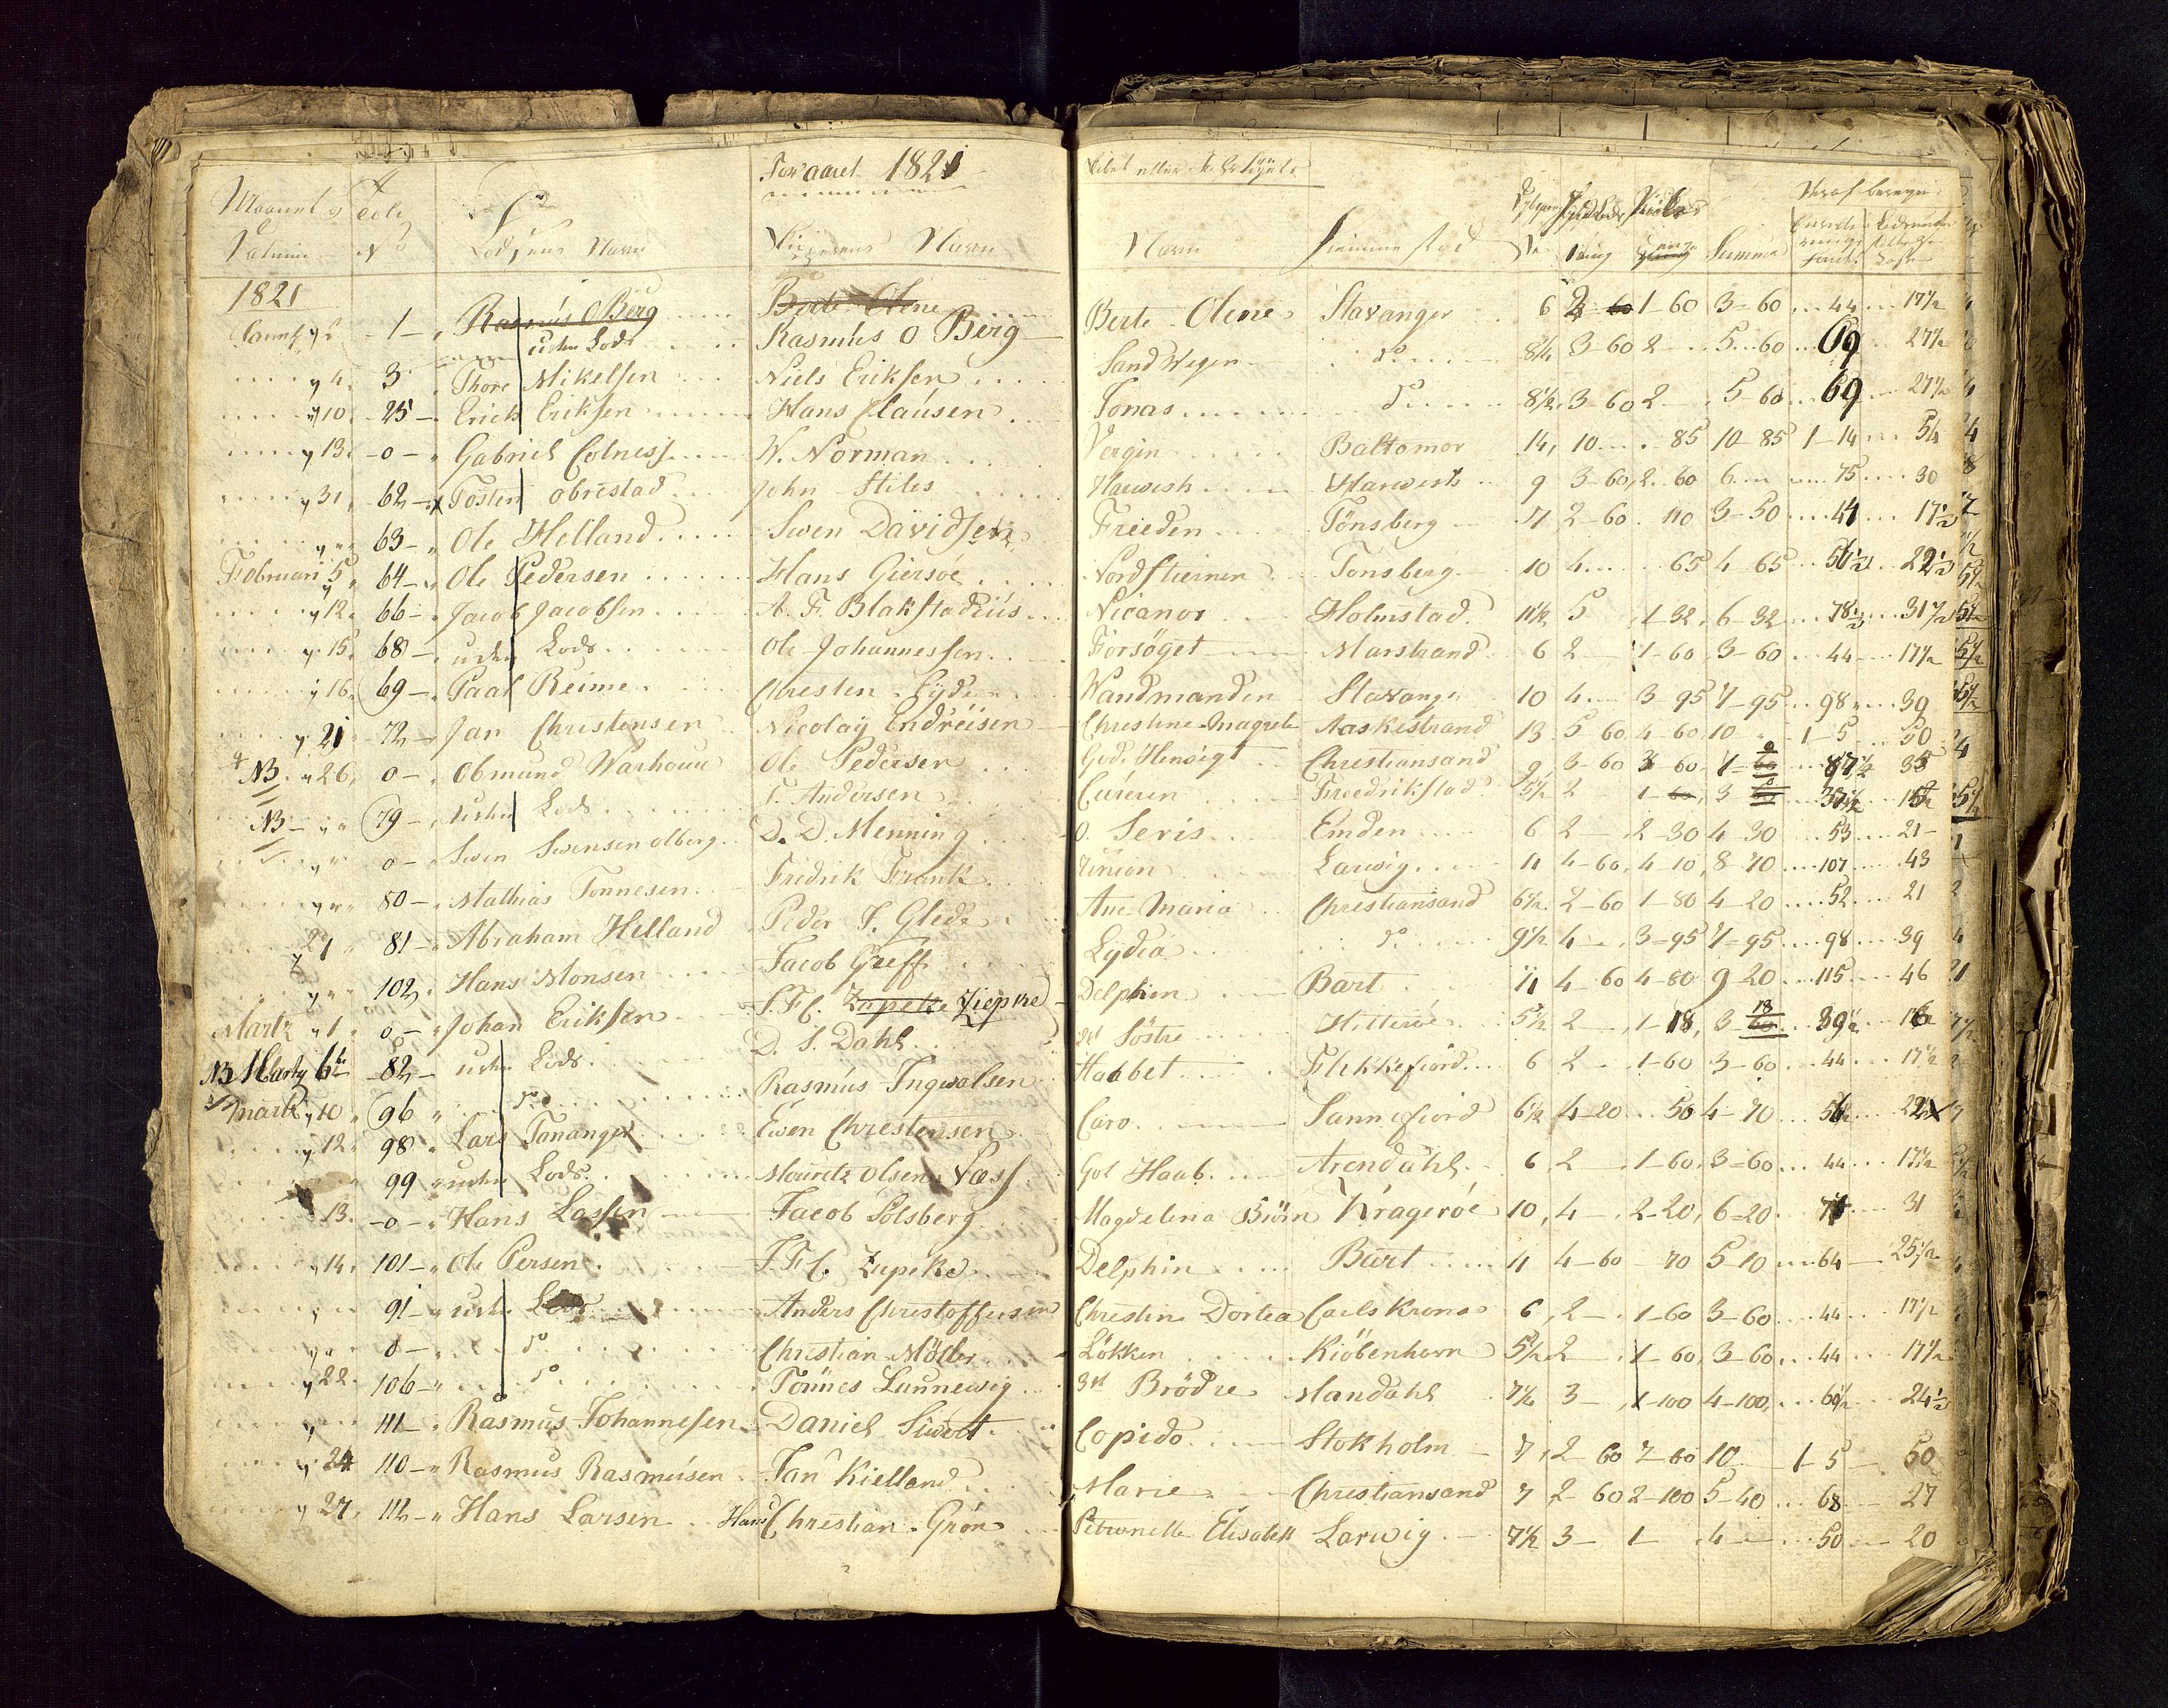 For aaret 1821
Maanet
Lodsens Navn
Navn
1821
1 Rasmus O Berg Berte Olene
uden Lods Rasmus O Berg
4 3 Thore Mikelsen Niels Eriksen
10 25 Erich Eriksen Hans Clausen
13 0 Gabriel Colness W. Norman
31 62 Tosten obrestad John Stiles
63 Ole Helland Swen Davidsen
Februari 5 64 Ole Pedersen Hans Giersöe
12 66 Jacob Jacobsen A. F. Blakstadius
15 68 uden Lods Ole Johannessen
16 69 Paal Reime Chresten
21 72 Jan Christensen Nicolaÿ Endreisen
NB 26 0 Obmund Warhoue Ole Pedersen
NB 79 uden Lods T. Andersen
0 Swen Swensen olberg D. D. Menning
80 Mathias Tonnesen Fridrik Frank
27 81 Abraham Helland Peder J. Glede
102 Hans Monsen Jacob Greff
Martz 1 0 Johan Eriksen J. F. C. Zupeke Ziepke
NB Martz 6 82 uden Lods D. S. Dahl
10 96 do Rasmus Ingwalsen
12 98 Lars Tananger Ewen Christensen
99 uden Lods Mouritz Olsen Væss
13 0 Hans Lassen Jacob Solsberg
14 101 Ole Persen J. F. C. Zupeke
91 uden Lods Anders Christoffersen
0 do Christian Möller
22 106 do Tönnes Lunnewig
111 Rasmus Johannesen Daniel
24 110 Rasmus Rasmusen Jan Kielland
27 112 Hans Larsen Hans Christian Grön
Navn Hiemme stad Summa
Berte Olene Stavanger 6 2 60 1-60 3-60 44 17½
Sand Wegen do 8½ 3-60 2 5-60 69 27½
Jonas do 8½ 3-60 2 5-60 69 27½
Vergin Baltomor 14 10 85 10-85 1-14 54
Harwish Harwesh 9 3-60 2-60 6 75 30
Frieden Tönsberg 7 2-60 110 3-50 44 17½
Nordstiernen Tonsberg 10 4 65 4-65 56½ 22½
Nicanor Holmstad 11½ 5 1-32 6-32 78½ 31½
Forsöget Marstrand 6 2 1-60 3-60 44 17½
Wandmanden Stavanger 10 4 3-95 7-95 98 39
Chrestine Magrete Aaskestrand 13 5-60 4-60 10 1-5 50
God Hensigt Christiansand 9 3-60 3-60 7 87½ 35
Cureren Freedrikstad 5½ 2 1-60 3 37½ 15
Seris Emden 6 2 2-30 4-30 53 21
Union Larwig 11 4-60 4-10 8-70 107 43
Ane Maria Christiansand 6½ 2-60 1-80 4-20 52 21
Lydia do 9½ 4 3-95 7-95 98 39
Delphin Bart 11 4-60 4-80 9-20 115 46
Söstre Hitteröe 5½ 2 1-18 3-18 39½ 16
Haabet Flekkefiord 6 2 1-60 3-60 44 17½
Caro Sannefiord 6½ 4-20 50 4-70 56½ 22½
Got Haab Arendahl 6 2 1-60 3-60 44 17½
Magdelena Biörn Kragerøe 10 4 2-20 6-20 31
Delphin Bart 11 4-60 70 5-10 64 25½
Chrestin Dortea Carls Krona 6 2 1-60 3-60 44 17½
Lökken Kiöbenhavn 5½ 2 1-60 3-60 44 17½
3de Brödre Mandahl 7½ 3 1-100 4-100 60½ 24½
Copido Stokholm 7 2-60 7-60 10 1-5 50
Marie Christiansand 7 2-60 2-100 5-40 68 27
Petronelle Elisabeth Larwig 7½ 3 1 4 50 20